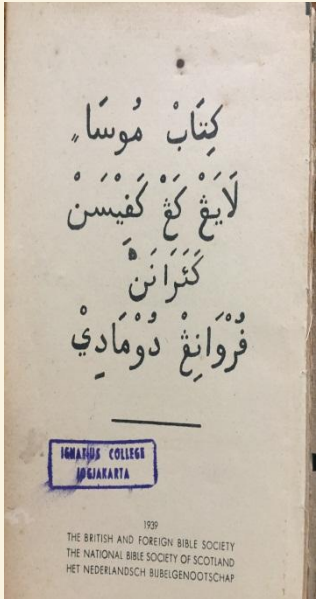 كِتَابْ مُوسَا
لَايَڠْ كَڠْ كَڤِيْسَنْ
كَئَرَانَنْ
ڤُرْوَانِڠْ دُوْمَادِيْ
IGNATIUS COLLEGE
JOGJAKARTA
1939
THE BRITISH AND FOREIGN BIBLE SOCIETY
THE NATIONAL BIBLE SOCIETY OF SCOTLAND
HET NEDERLANDSCH BIJBELGENOOTSCHAP